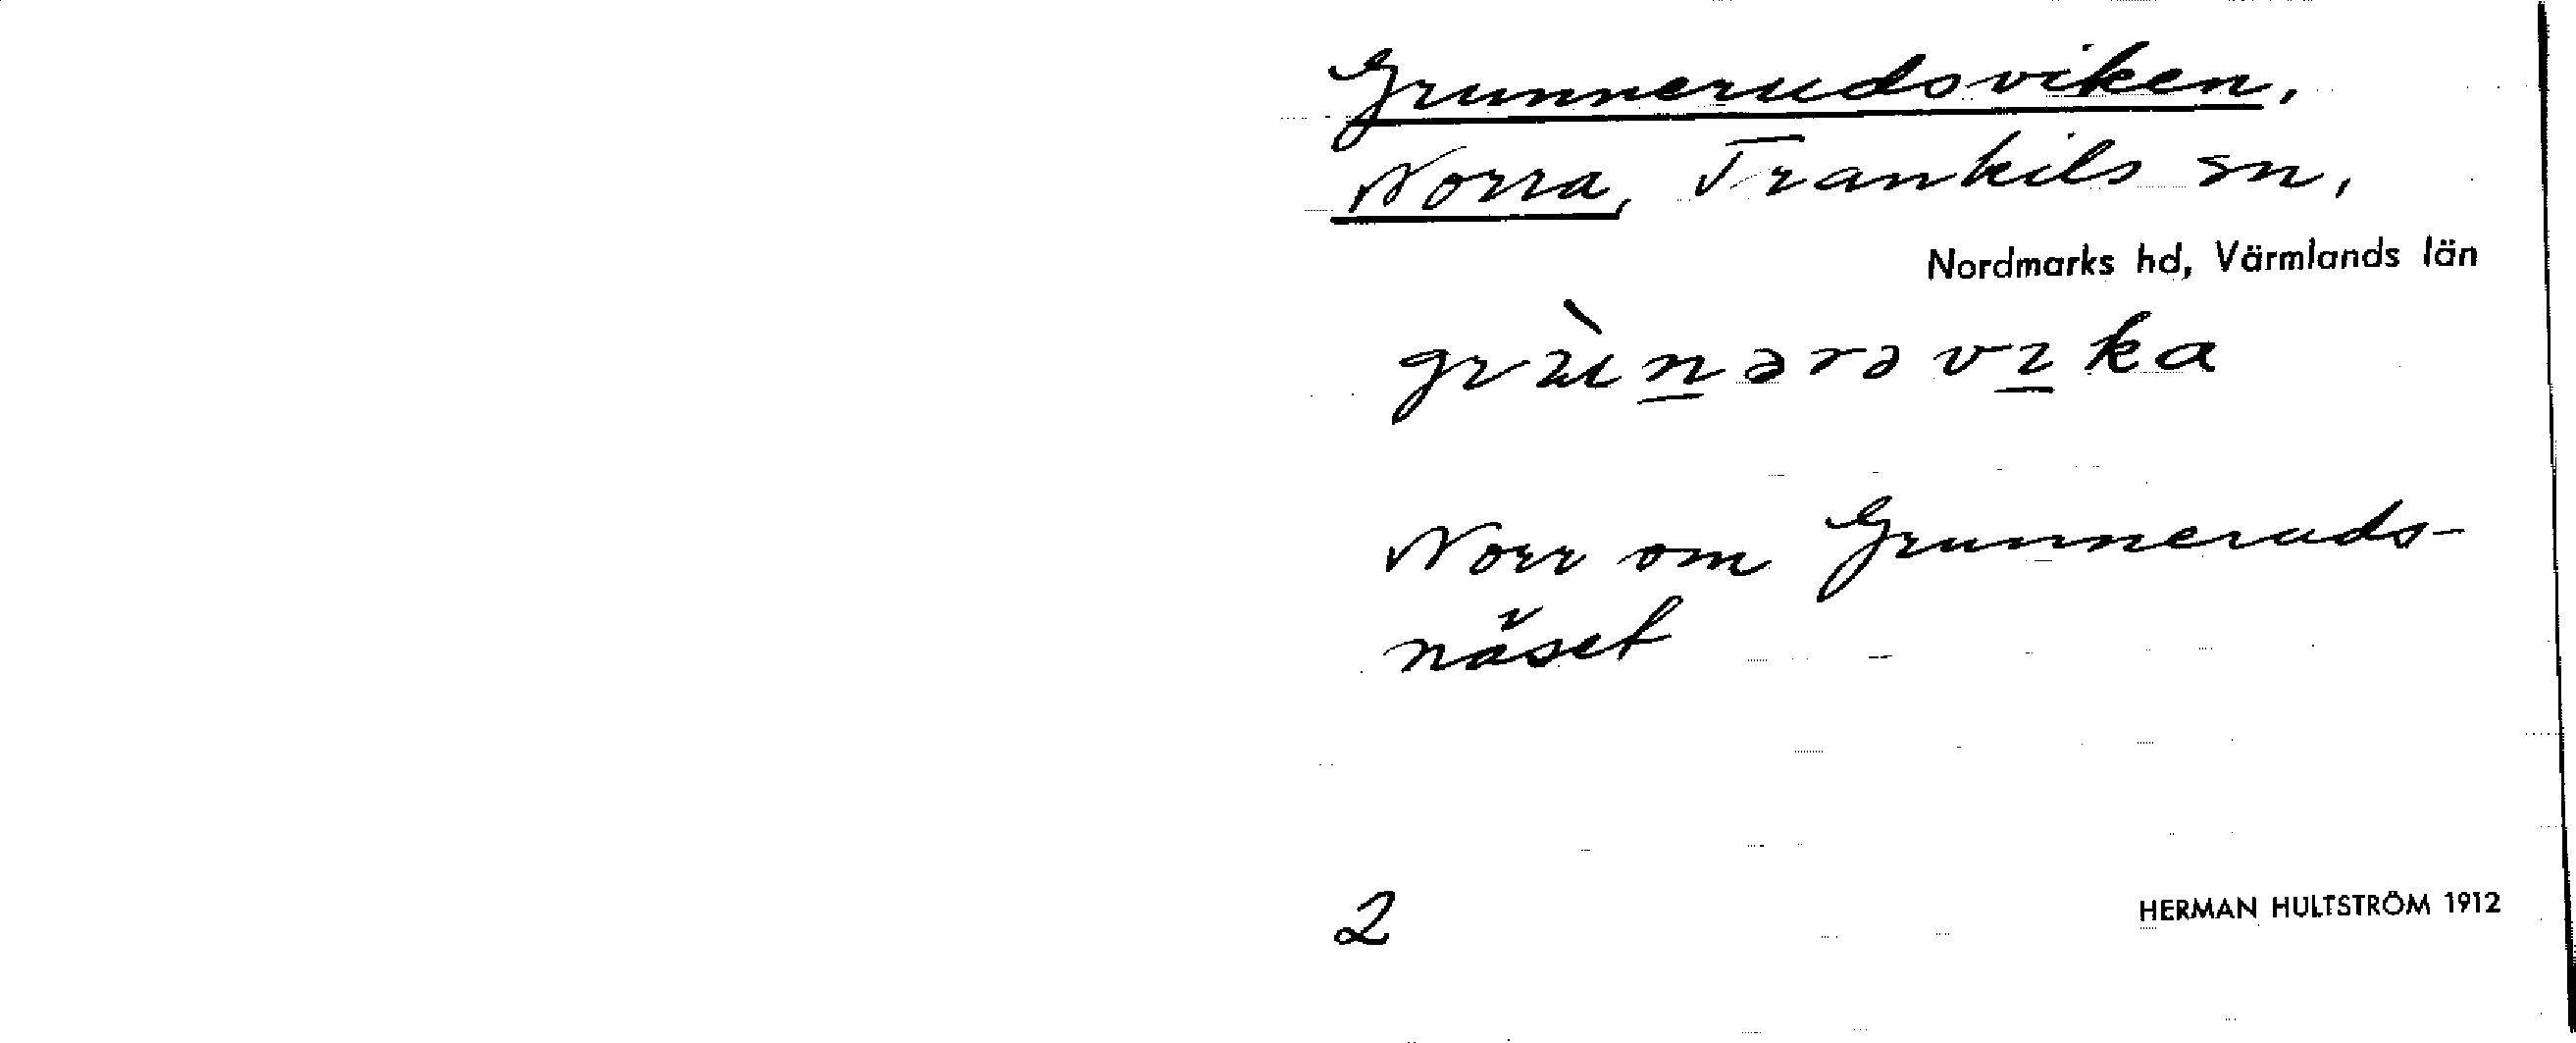 Grunnerudsviken,
Norra, Trankils sn,
Nordmarks hd, Värmlands län
grùnərəvıka
Norr om Grunneruds-
näset
2
HERMAN HULTSTRÖM 1912